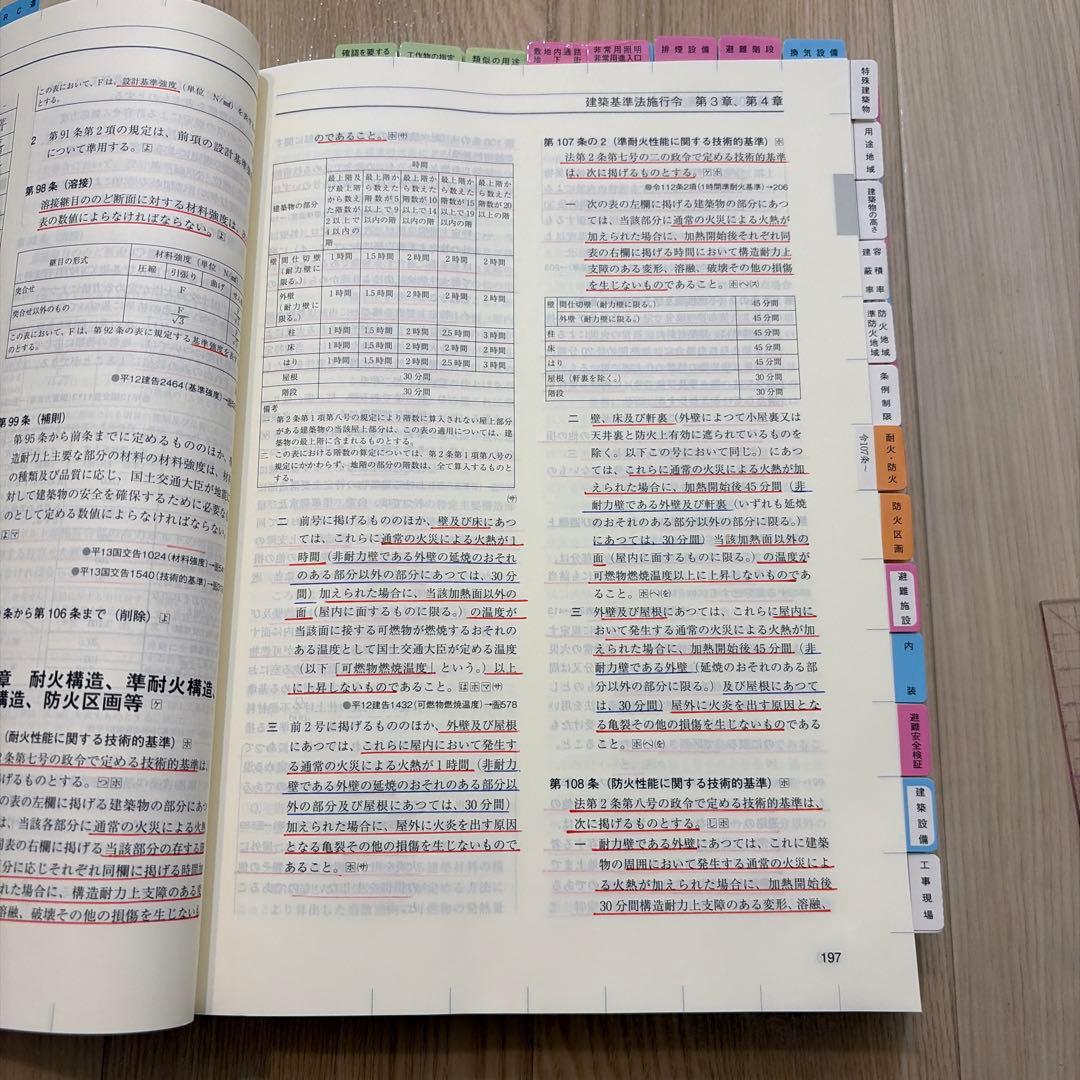 確認を要する
工作物の指定
類似の用途
敷地内通路
地下街
非常用照明
非常用進入口
排煙設備
避難階段
換気設備
この表において、Fは、設計基準強度（単位 N/㎟）を
とする。
2 第91条第2項の規定は、前項の設計基準
について準用する。
第98条（溶接）
溶接継目ののど断面に対する材料強度は、
表の数値によらなければならない。
継目の形式
材料強度（単位 N/㎟）
圧縮 引張り 曲げ
突合せ F
突合せ以外のもの F/√3 F/√3
この表において、Fは、第92条の表に規定する基準強度を
のとする。
●平12建告2464（基準強度）→
第99条（補則）
第95条から前条までに定めるもののほか、
造耐力上主要な部分の材料の材料強度は、
の種類及び品質に応じ、国土交通大臣が地震
対して建築物の安全を確保するために必要な
のとして定める数値によらなければならない。
●平13国交告1024（材料強度）→
●平13国交告1540（技術的基準）→
条から第106条まで （削除）
章 耐火構造、準耐火構造、
構造、防火区画等
（耐火性能に関する技術的基準）
2条第七号の政令で定める技術的基準は、
げるものとする。
の表の左欄に掲げる建築物の部分にあつ
は、当該各部分に通常の火災による火
同表の右欄に掲げる当該部分の存する
分に応じそれぞれ同欄に掲げる時間
れた場合に、構造耐力上支障のある変
溶融、破壊その他の損傷を生じない
建築基準法施行令 第3章、第4章
のであること。
建築物の部分
時間
最上階及び最上階から数えた階数が2以上で4以内の階
最上階から数えた階数が5以上で9以内の階
最上階から数えた階数が10以上で14以内の階
最上階から数えた階数が15以上で19以内の階
最上階から数えた階数が20以上の階
壁 間仕切壁（耐力壁に限る。） 1時間 1.5時間 2時間 2時間 2時間
外壁（耐力壁に限る。） 1時間 1.5時間 2時間 2時間 2時間
柱 1時間 1.5時間 2時間 2.5時間 3時間
床 1時間 1.5時間 2時間 2時間 2時間
はり 1時間 1.5時間 2時間 2.5時間 3時間
屋根 30分間
階段 30分間
備考
一 第2条第1項第八号の規定により階数に算入されない屋上部分
がある建築物の当該屋上部分は、この表の適用については、建
築物の最上階に含まれるものとする。
二 この表における階数の算定については、第2条第1項第八号の
規定にかかわらず、地階の部分の階数は、全て算入するものと
する。
二 前号に掲げるもののほか、壁及び床にあつ
ては、これらに通常の火災による火熱が1
時間（非耐力壁である外壁の延焼のおそれ
のある部分以外の部分にあつては、30分
間）加えられた場合に、当該加熱面以外の
面（屋内に面するものに限る。）の温度が
当該面に接する可燃物が燃焼するおそれの
ある温度として国土交通大臣が定める温度
（以下「可燃物燃焼温度」という。）以上
に上昇しないものであること。
●平12建告1432（可燃物燃焼温度）→告578
三 前2号に掲げるもののほか、外壁及び屋根
にあつては、これらに屋内において発生す
る通常の火災による火熱が1時間（非耐力
壁である外壁の延焼のおそれのある部分以
外の部分及び屋根にあつては、30分間）
加えられた場合に、屋外に火炎を出す原因
となる亀裂その他の損傷を生じないもので
あること。
第107条の2（準耐火性能に関する技術的基準）
法第2条第七号の二の政令で定める技術的基準
は、次に掲げるものとする。
●令112条2項（1時間準耐火基準）→206
一 次の表の左欄に掲げる建築物の部分にあつ
ては、当該部分に通常の火災による火熱が
加えられた場合に、加熱開始後それぞれ同
表の右欄に掲げる時間において構造耐力上
支障のある変形、溶融、破壊その他の損傷
を生じないものであること。
壁 間仕切壁（耐力壁に限る。） 45分間
外壁（耐力壁に限る。） 45分間
柱 45分間
床 45分間
はり 45分間
屋根（軒裏を除く。） 30分間
階段 30分間
二 壁、床及び軒裏（外壁によつて小屋裏又は
天井裏と防火上有効に遮られているものを
除く。以下この号において同じ。）にあつ
ては、これらに通常の火災による火熱が加
えられた場合に、加熱開始後45分間（非
耐力壁である外壁及び軒裏（いずれも延焼
のおそれのある部分以外の部分に限る。）
にあつては、30分間）当該加熱面以外の
面（屋内に面するものに限る。）の温度が
可燃物燃焼温度以上に上昇しないものであ
ること。
三 外壁及び屋根にあつては、これらに屋内に
おいて発生する通常の火災による火熱が加
えられた場合に、加熱開始後45分間（非
耐力壁である外壁（延焼のおそれのある部
分以外の部分に限る。）及び屋根にあつて
は、30分間）屋外に火炎を出す原因とな
る亀裂その他の損傷を生じないものである
こと。
第108条（防火性能に関する技術的基準）
法第2条第八号の政令で定める技術的基準は、
次に掲げるものとする。
一 耐力壁である外壁にあつては、これに建築
物の周囲において発生する通常の火災によ
る火熱が加えられた場合に、加熱開始後
30分間構造耐力上支障のある変形、溶融、
197
特殊建築物
用途地域
建築物の高さ
容積率
建蔽率
防火地域
準防火地域
条例制限
令107条～
耐火・防火
防火区画
避難施設
内装
避難安全検証
建築設備
工事現場